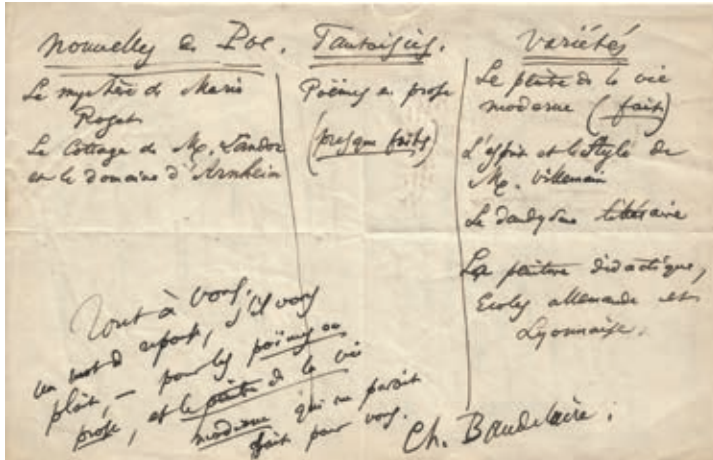 Nouvelles de Poe.
Le mystère de Marie
Roget
Le Cottage de M. Landor
et le domaine d'Arnheim
Fantaisies.
Poëmes en prose
(presque faits)
Variétés
Le peintre de la vie
moderne (fait)
L'esprit et le style de
M. Villemain
Le dandysme littéraire
La peinture didactique,
Ecoles allemande et
Lyonnaise.
Tout à vous.
un mot de réponse, s'il vous
plait, — pour les poëmes en
prose, et le peintre de la vie
moderne qui me parait
fait pour vous.
Ch. Baudelaire.